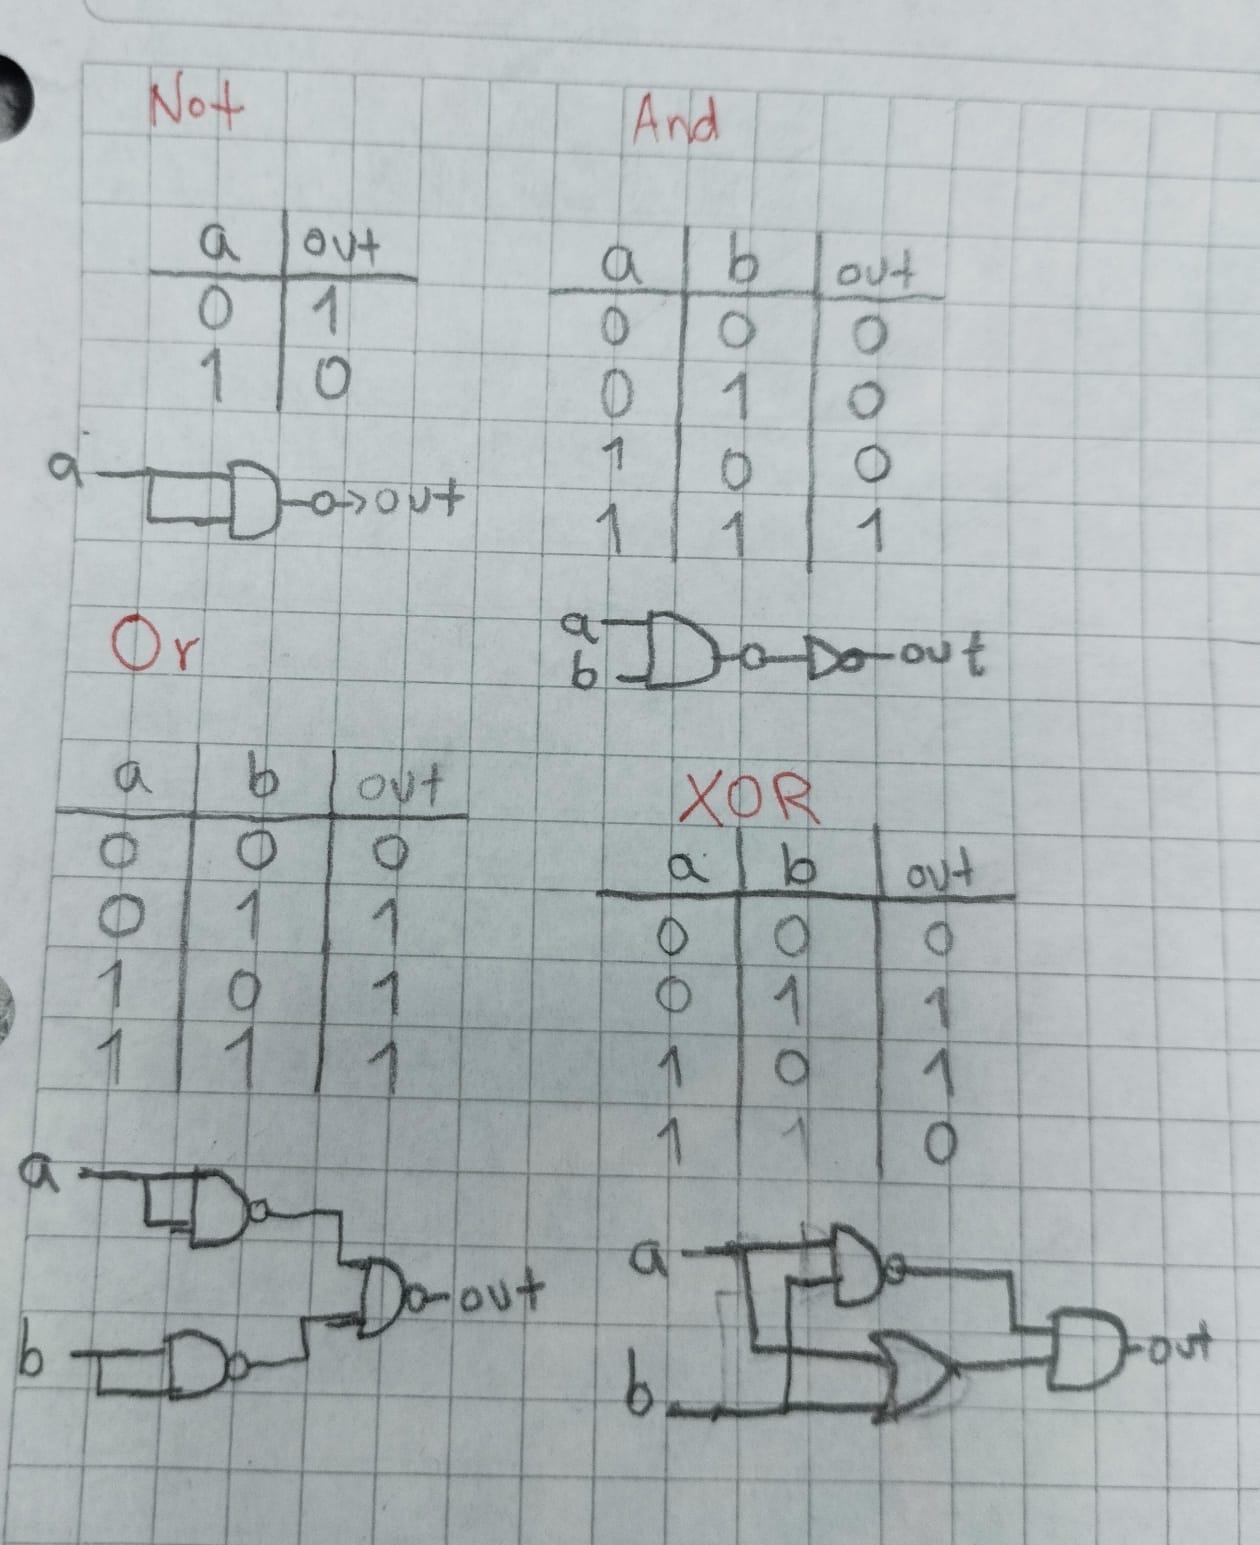 Not
a out
0 1
1 0
a out
And
a b out
0 0 0
0 1 0
1 0 0
1 1 1
a
b out
Or
a b out
0 0 0
0 1 1
1 0 1
1 1 1
a
out
b
XOR
a b out
0 0 0
0 1 1
1 0 1
1 1 0
a
out
b